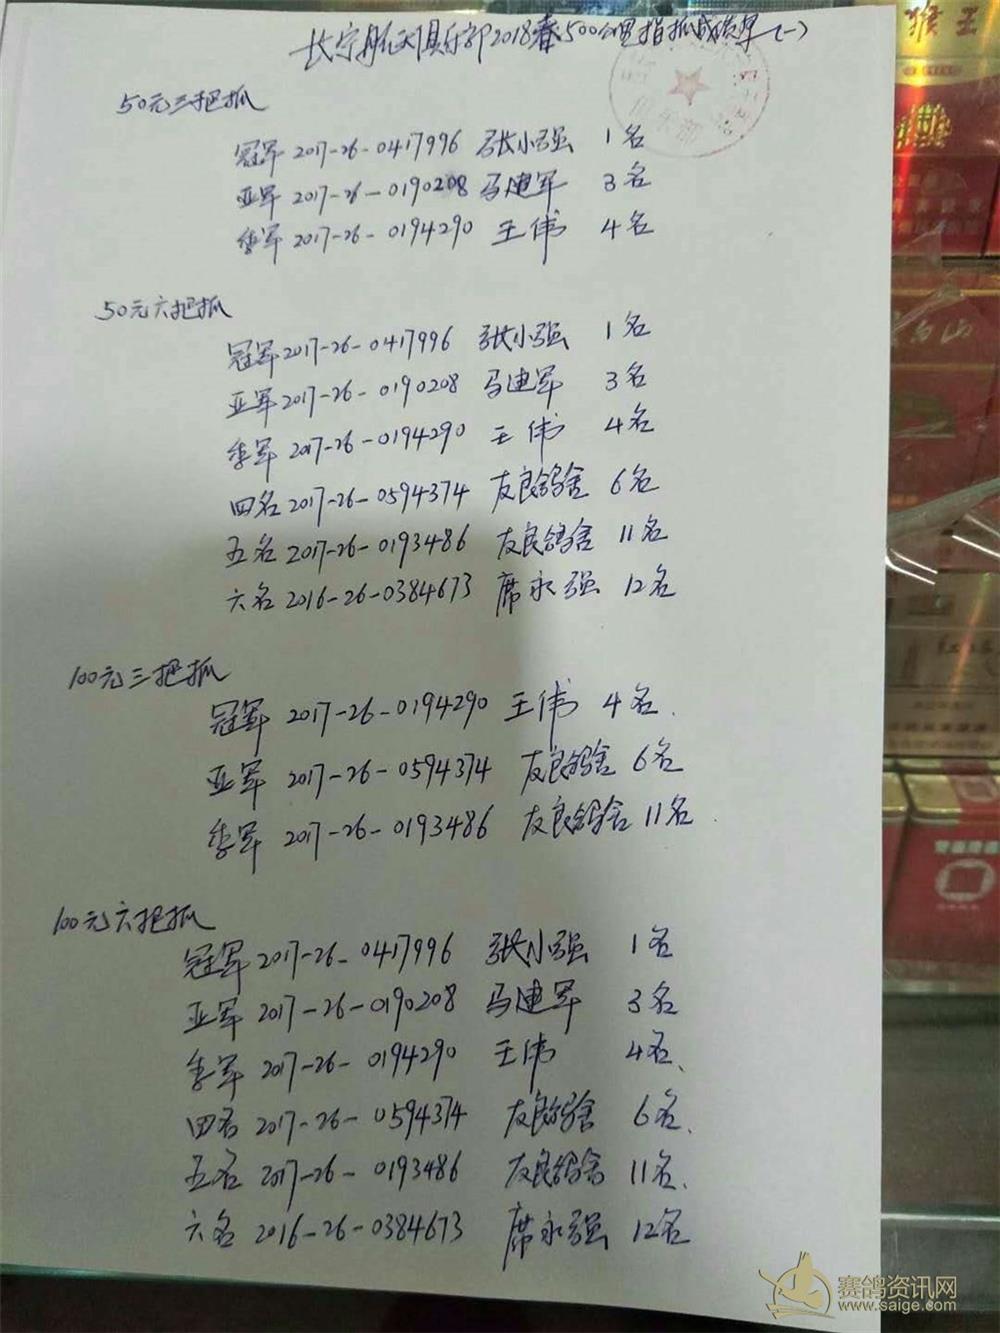 长宁航天俱乐部2018春500公里指抓成绩单(一)
50元三把抓
冠军 2017-26-0417996 张小强 1名
亚军 2017-26-0190208 马建军 3名
季军 2017-26-0194290 王伟 4名
50元六把抓
冠军 2017-26-0417996 张小强 1名
亚军 2017-26-0190208 马建军 3名
季军 2017-26-0194290 王伟 4名
四名 2017-26-0594374 友良鸽舍 6名
五名 2017-26-0193486 友良鸽舍 11名
六名 2016-26-0384673 席永强 12名
100元三把抓
冠军 2017-26-0194290 王伟 4名.
亚军 2017-26-0594374 友良鸽舍 6名
季军 2017-26-0193486 友良鸽舍 11名.
100元六把抓
冠军 2017-26-0417996 张小强 1名
亚军 2017-26-0190208 马建军 3名
季军 2017-26-0194290 王伟 4名.
四名 2017-26-0594374 友良鸽舍 6名.
五名 2017-26-0193486 友良鸽舍 11名.
六名 2016-26-0384673 席永强 12名
俱乐部
猴王
赛鸽资讯网
www.saige.com